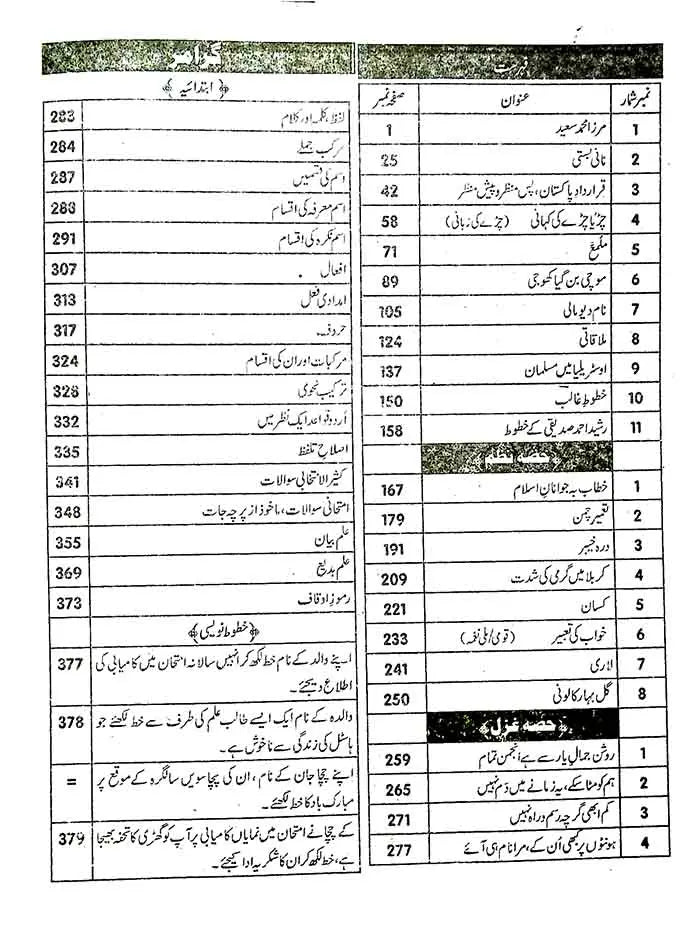 فہرست
نمبر شمار عنوان صفحہ نمبر
1 مرزا محمد سعید 1
2 نانی بستی 25
3 قراردادِ پاکستان، پس منظر و پیش منظر 42
4 چڑیا چڑے کی کہانی (چڑے کی زبانی) 58
5 ملمع 71
6 موچی بن گیا کھوجی 89
7 نام دیو مالی 105
8 ملاقاتی 124
9 اوسٹریلیا میں مسلمان 137
10 خطوطِ غالب 150
11 رشید احمد صدیقی کے خطوط 158
حصہ نظم
1 خطاب بہ جوانانِ اسلام 167
2 تعمیرِ چمن 179
3 درہ خیبر 191
4 کربلا میں گرمی کی شدت 209
5 کسان 221
6 خواب کی تعبیر (قومی/ملی نغمہ) 233
7 لاری 241
8 گل بہار کالونی 250
﴿حصہ غزل﴾
1 روشن جمالِ یار سے ہے انجمن تمام 259
2 ہم کو مٹا سکے، یہ زمانے میں دم نہیں 265
3 کم ابھی گرچہ رسم و راہ نہیں 271
4 ہونٹوں پر کبھی اُن کے، مرا نام ہی آئے 277
گرامر
﴿ابتدائیہ﴾
لفظ، کلمہ اور کلام 283
مرکب جملے 284
اسم کی قسمیں 287
اسم معرفہ کی اقسام 288
اسم نکرہ کی اقسام 291
افعال 307
امدادی فعل 313
حروف 317
مرکبات اور ان کی اقسام 324
ترکیب نحوی 328
اُردو قواعد ایک نظر میں 332
اصلاحِ تلفظ 335
کثیر الانتخابی سوالات 341
امتحانی سوالات، ماخوذ از پرچہ جات 348
علم بیان 355
علم بدیع 369
رموزِ اوقاف 373
﴿خطوط نویسی﴾
اپنے والد کے نام خط لکھ کر انہیں سالانہ امتحان میں کامیابی کی 377
اطلاع دیجئے۔
والدہ کے نام ایک ایسے طالب علم کی طرف سے خط لکھئے جو 378
ہاسٹل کی زندگی سے ناخوش ہے۔
اپنے چچا جان کے نام، ان کی پچاسویں سالگرہ کے موقع پر =
مبارک باد کا خط لکھئے۔
کے چچا نے امتحان میں نمایاں کامیابی پر آپ کو گھڑی کا تحفہ بھیجا 379
ہے، خط لکھ کر ان کا شکریہ ادا کیجئے۔